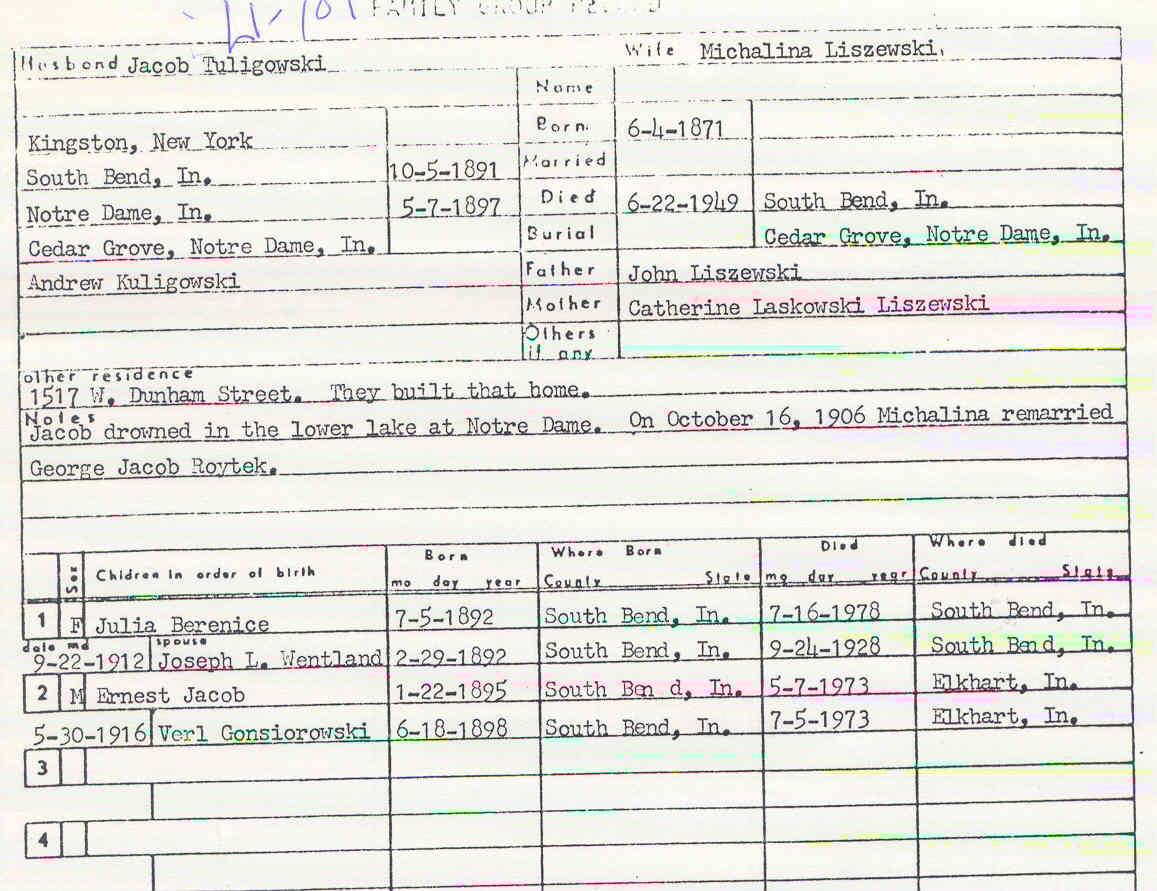 FAMILY GROUP RECORD
Husband Jacob Tuligowski Wife Michalina Liszewski,
Name
Kingston, New York Born 6-4-1871
South Bend, In. 10-5-1891 Married
Notre Dame, In. 5-7-1897 Died 6-22-1949 South Bend, In.
Cedar Grove, Notre Dame, In. Burial Cedar Grove, Notre Dame, In.
Andrew Kuligowski Father John Liszewski
Mother Catherine Laskowski Liszewski
Others
if any
other residence
1517 W. Dunham Street. They built that home.
Notes
Jacob drowned in the lower lake at Notre Dame. On October 16, 1906 Michalina remarried
George Jacob Roytek.
Sex Chidren in order of birth Born Where Born Died Where died
mo day year County State mo day year County State
1 F Julia Berenice 7-5-1892 South Bend, In. 7-16-1978 South Bend, In.
date md spouse
9-22-1912 Joseph L. Wentland 2-29-1892 South Bend, In. 9-24-1928 South Bend, In.
2 M Ernest Jacob 1-22-1895 South Ben d, In. 5-7-1973 Elkhart, In.
5-30-1916 Verl Gonsiorowski 6-18-1898 South Bend, In. 7-5-1973 Elkhart, In.
3
4